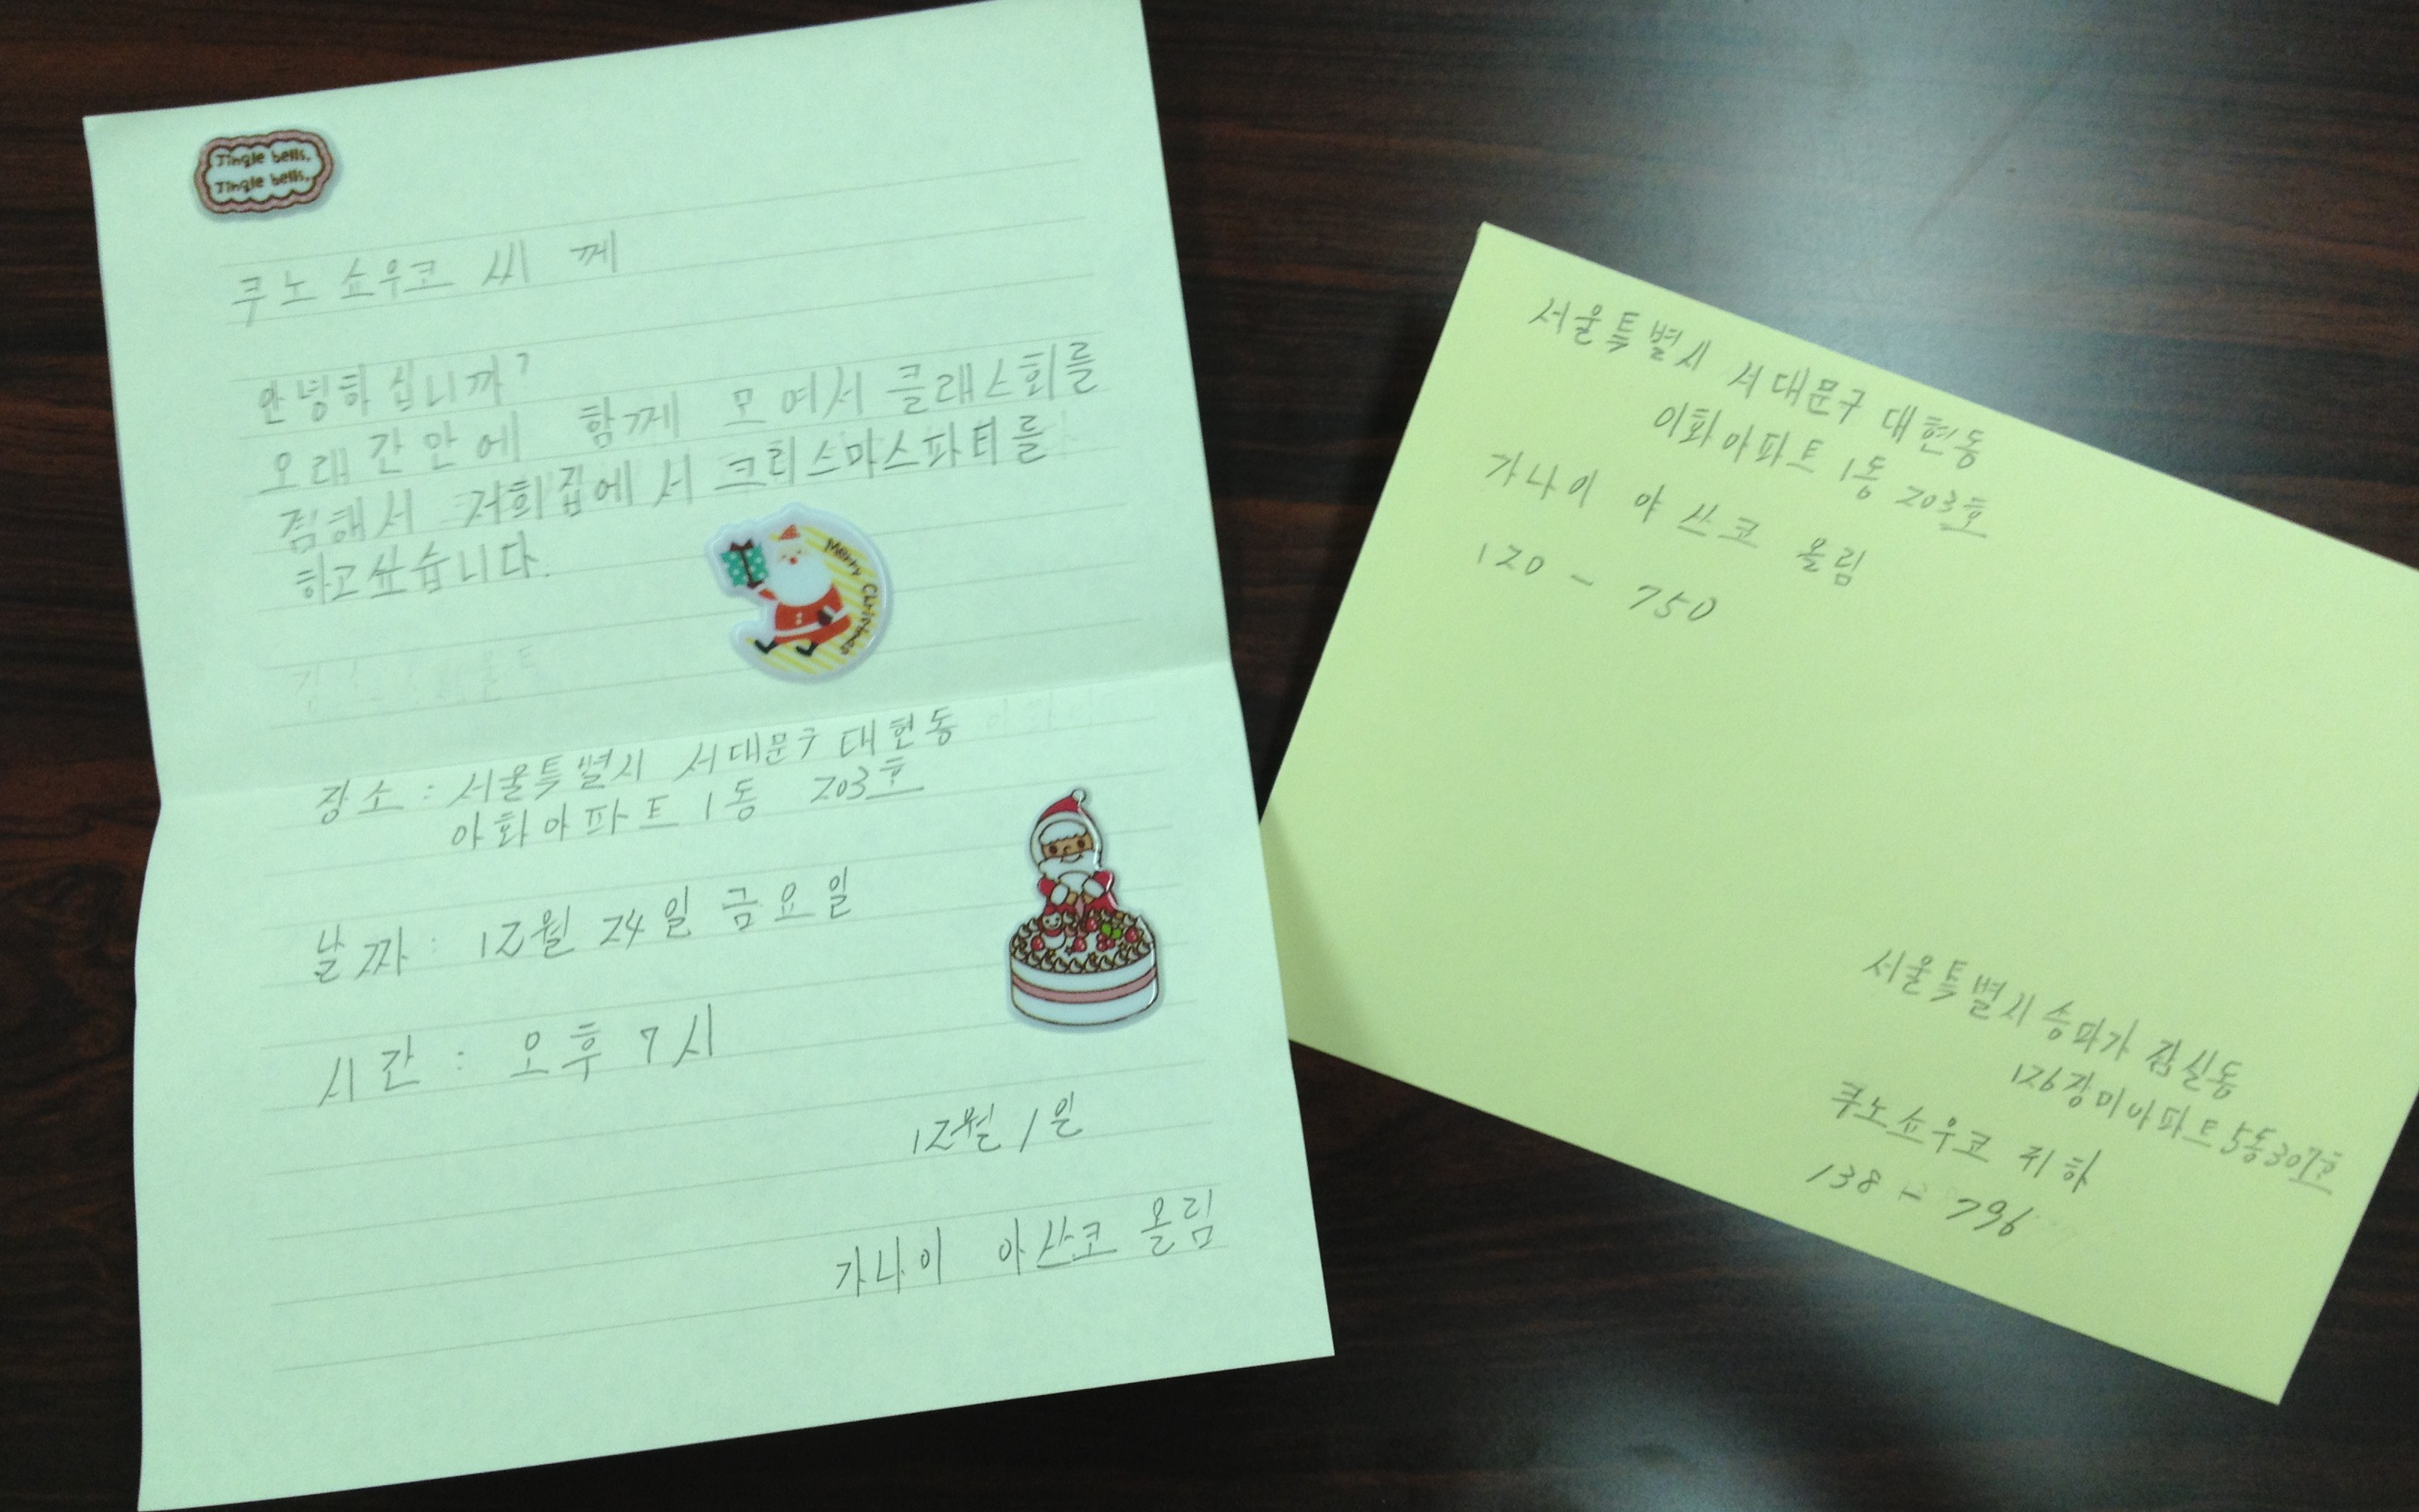 Jingle bells,
Jingle bells,
쿠노 쇼우코 씨 께
안녕하십니까?
오래간안에 함께 모여서 클래스회를
겸해서 저희집에서 크리스마스파티를
하고싶습니다.
Merry Christmas
장소 : 서울특별시 서대문구 대현동
아화아파트 1동 203호
날짜 : 12월 24일 금요일
시간 : 오후 7시
12월 1일
가나이 아쓰코 올림
서울특별시 서대문구 대현동
이화아파트 1동 203호
가나이 아쓰코 올림
120 - 750
서울특별시 송파가 잠실동
126장미아파트 5동307호
쿠노쇼우코 귀하
138 - 796